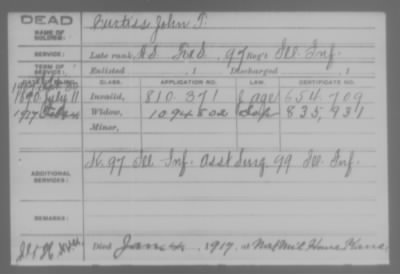 DEAD
NAME OF SOLDIER:
Curtiss, John T.
SERVICE:
Late rank, H.S. F&S, 97 Reg't Ill. Inf.
TERM OF SERVICE:
Enlisted , 1 Discharged , 1
DATE OF FILING.
CLASS.
APPLICATION NO.
LAW.
CERTIFICATE NO.
1890 July 11
Invalid,
810.371
654.709
1917
Widow,
1094802
835,931
Minor,
ADDITIONAL SERVICES:
K. 97 Ill. Inf. Asst Surg 99 Ill. Inf.
REMARKS:
Died Jan 4, 1917, at Nat Mil Home Kans.